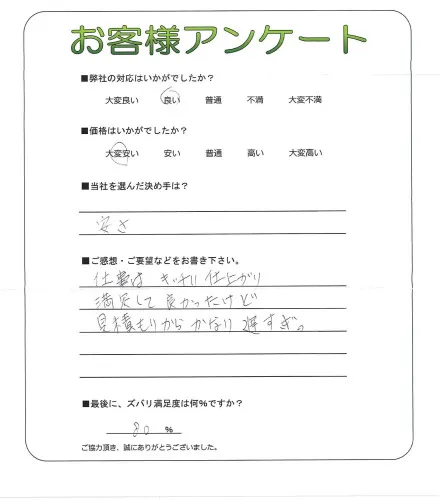 お客様アンケート
■弊社の対応はいかがでしたか？
大変良い 良い 普通 不満 大変不満
■価格はいかがでしたか？
大変安い 安い 普通 高い 大変高い
■当社を選んだ決め手は？
安さ
■ご感想・ご要望などをお書き下さい。
仕事は キッチリ 仕上がり
満足して 良かったけど
見積もりから かなり 遅すぎ。
■最後に、ズバリ満足度は何%ですか？
80 %
ご協力頂き、誠にありがとうございました。